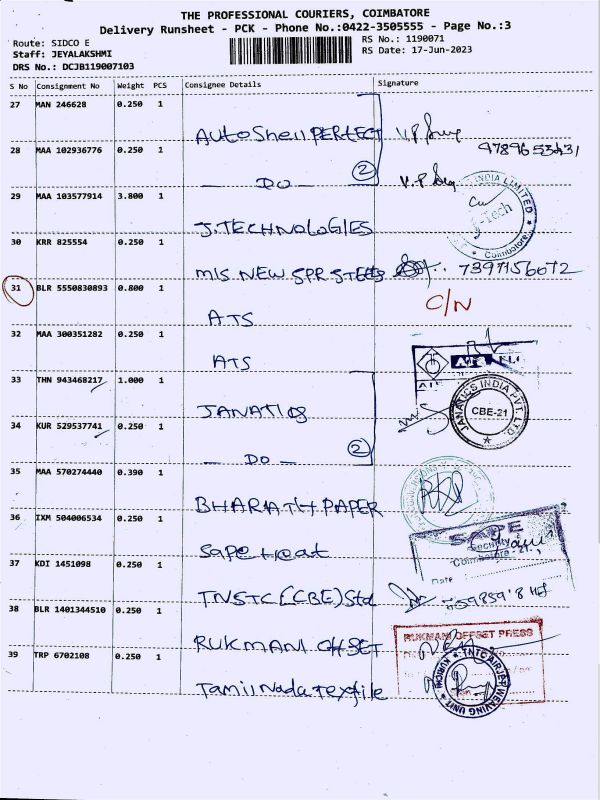 THE PROFESSIONAL COURIERS, COIMBATORE
Delivery Runsheet - PCK - Phone No.:0422-3505555 - Page No.:3
Route: SIDCO E
Staff: JEYALAKSHMI
DRS No.: DCJB119007103
RS No.: 1190071
RS Date: 17-Jun-2023
S No Consignment No Weight PCS Consignee Details Signature
27 MAN 246628 0.250 1
AutoShell PERFECT V.P
28 MAA 102936776 0.250 1
DO (2) V.P
29 MAA 103577914 3.800 1
J.TECHNOLOGIES
INDIA LIMITED
J-Tech
Coimbatore
30 KRR 825554 0.250 1
M/S NEW SPR STEELS 7397156672
31 BLR 5550830893 0.800 1
ATS C/N
32 MAA 300351282 0.250 1
ATS
33 THN 943468217 1.000 1
JANATICS
JANATICS INDIA PVT. LTD.
CBE-21
34 KUR 529537741 0.250 1
DO (2)
35 MAA 570274440 0.390 1
BHARATH PAPER
36 IXM 504006534 0.250 1
Sape Heat
SAPE
Security
Coimbatore - 21.
Date
37 KDI 1451098 0.250 1
TNSTC (CBE) Std
38 BLR 1401344510 0.250 1
RUKMANI OFFSET
RUKMANI OFFSET PRESS
39 TRP 6702108 0.250 1
Tamil Nadu textile
TNTC AIRJET WEAVING UNIT